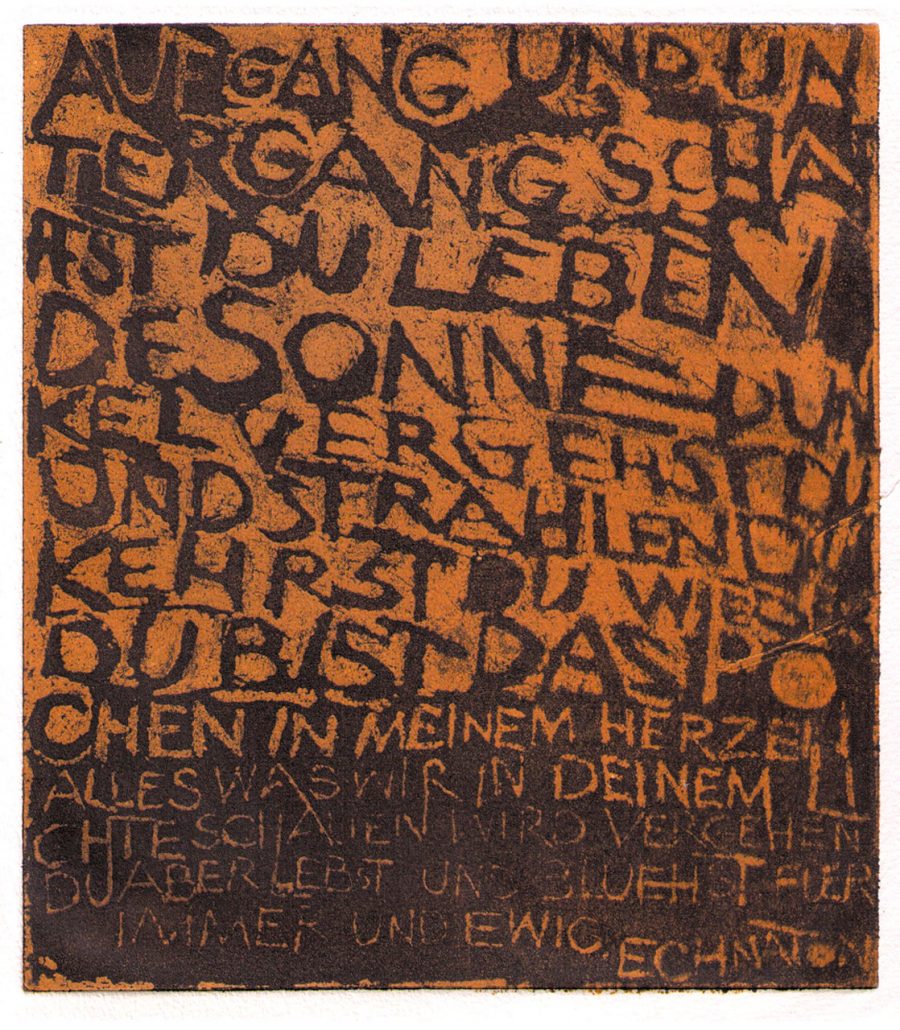 AUFGANG UND UN
TERGANG SCHA
FFST DU LEBEN
DE SONNE DUN
KEL VERGEHST DU
UND STRAHLEND
KEHRST DU WIEDER
DU BIST DAS PO
CHEN IN MEINEM HERZEN
ALLES WAS WIR IN DEINEM LI
CHTE SCHAUEN WIRD VERGEHEN
DU ABER LEBST UND BLUEHST FUER
IMMER UND EWIG. ECHNATON